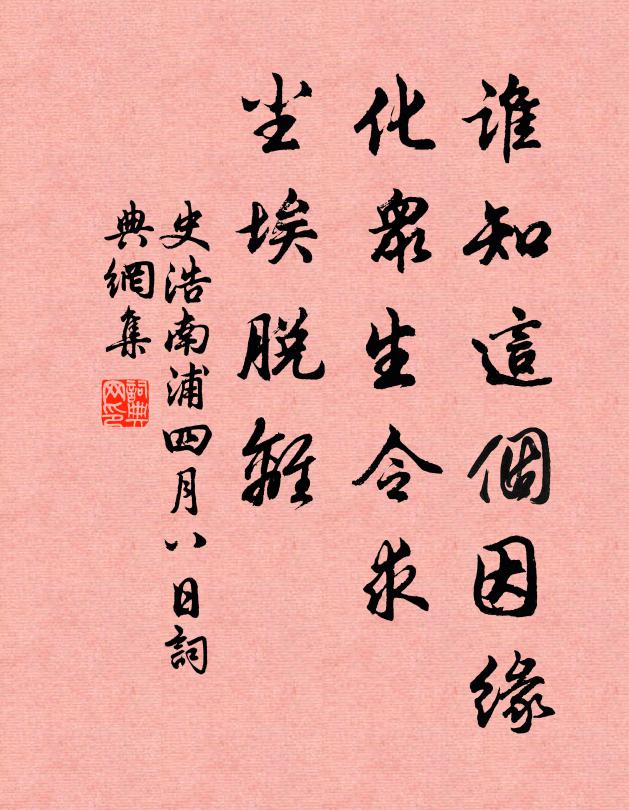 誰知這個因緣
化眾生令求
尘埃脫離
史浩南浦四月八日詞
典網集
詞典
网印